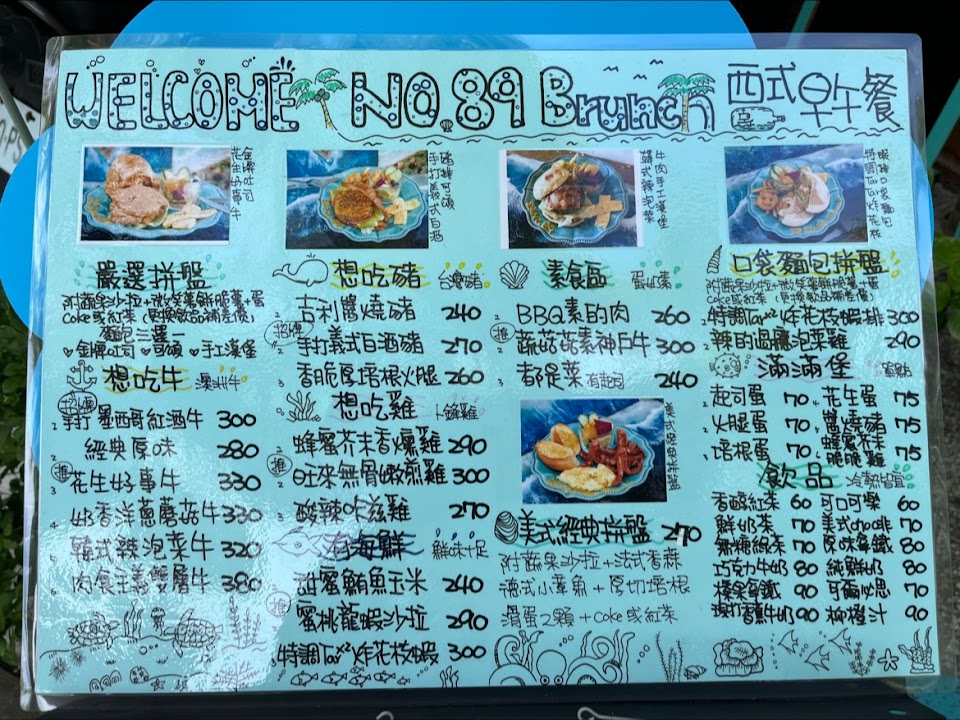 WELCOME NO.89 Brunch 西式早午餐
金牌吐司
花生好事牛
豬排可頌
手打義式白酒
牛肉手工漢堡
韓式辣泡菜
嚴選拼盤
附蔬果沙拉+微笑薯餅脆薯+蛋
Coke或紅茶(更換飲品補差價)
麵包三選一
金牌吐司 可頌 手工漢堡
想吃牛 澳洲牛
手打墨西哥紅酒牛 300
經典原味 280
推 花生好事牛 330
奶香洋蔥蘑菇牛 330
韓式辣泡菜牛 320
肉食主義雙層牛 380
想吃豬 台灣豬
吉利醬燒豬 240
手打義式白酒豬 270
香脆厚培根火腿 260
想吃雞 卜蜂雞
蜂蜜芥末香燻雞 290
推 旺來無骨嫩煎雞 300
酸辣咔滋雞 270
有海鮮 鮮味十足
甜蜜鮪魚玉米 240
推 蜜桃龍蝦沙拉 290
特調Tax²炸花枝蝦 300
素食區 蛋奶素
BBQ素的肉 260
推 蔬菇菇素神戶牛 300
都是菜 有起司 240
美式經典拼盤
美式經典拼盤 270
附蔬果沙拉+法式香蒜
德式小章魚+厚切培根
滑蛋2顆+Coke或紅茶
口袋麵包拼盤
附蔬果沙拉+微笑薯餅脆薯+蛋
Coke或紅茶(更換飲品補差價)
特調Tax²炸花枝蝦排 300
辣的過癮泡菜雞 290
滿滿堡
起司蛋 70 花生蛋 75
火腿蛋 70 醬燒豬 75
培根蛋 70 蜂蜜芥末脆脆雞 75
飲品 冷熱皆固
香醇紅茶 60 可口可樂 60
鮮奶茶 70 美式choo啡 70
無糖綠茶 70 原味拿鐵 80
巧克力牛奶 80 純鮮奶 80
榛果拿鐵 90 阿爾必思 70
現打香蕉牛奶 90 柳橙汁 90